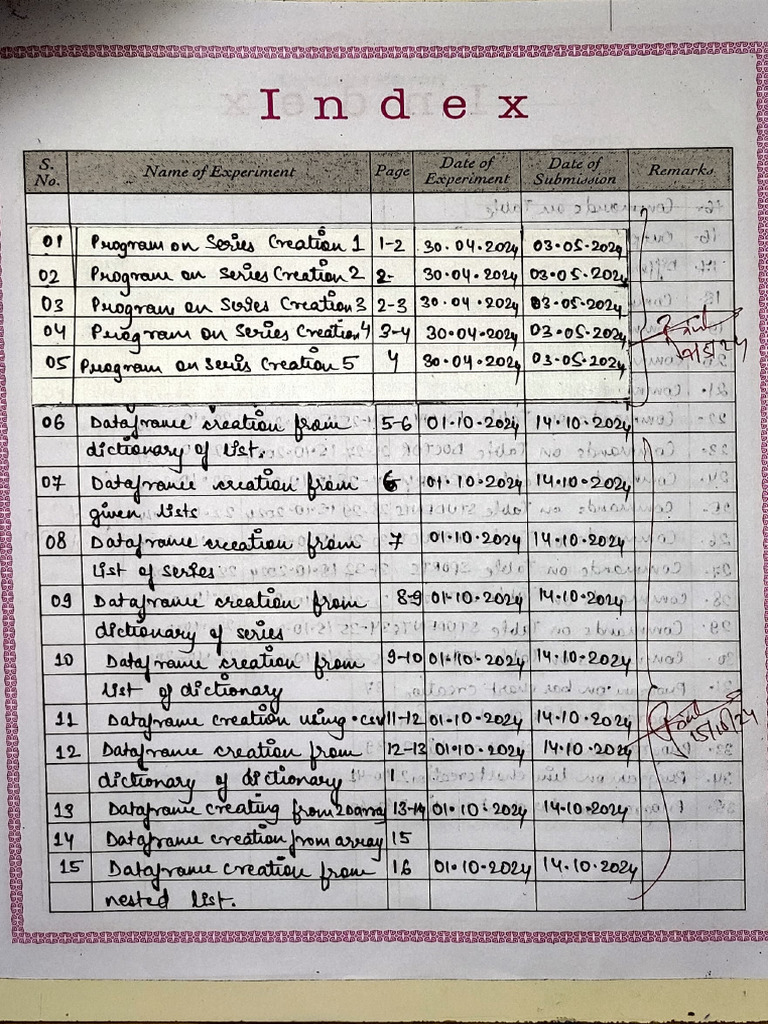 Index
S. No. Name of Experiment Page Date of Experiment Date of Submission Remarks
01 Program on Series Creation 1 1-2 30.04.2024 03.05.2024
02 Program on Series Creation 2 2- 30.04.2024 03.05.2024
03 Program on Series Creation 3 2-3 30.04.2024 03.05.2024
04 Program on Series Creation 4 3-4 30.04.2024 03.05.2024
05 Program on Series Creation 5 4 30.04.2024 03.05.2024
06 Dataframe creation from 5-6 01.10.2024 14.10.2024
dictionary of list.
07 Dataframe creation from 6 01.10.2024 14.10.2024
given lists
08 Dataframe creation from 7 01.10.2024 14.10.2024
list of series
09 Dataframe creation from 8-9 01.10.2024 14.10.2024
dictionary of series
10 Dataframe creation from 9-10 01.10.2024 14.10.2024
list of dictionary
11 Dataframe creation using .csv 11-12 01.10.2024 14.10.2024
12 Dataframe creation from 12-13 01.10.2024 14.10.2024
dictionary of dictionary
15/10/24
13 Dataframe creating from 2D array 13-14 01.10.2024 14.10.2024
14 Dataframe creation from array 15
15 Dataframe creation from 16 01.10.2024 14.10.2024
nested list.